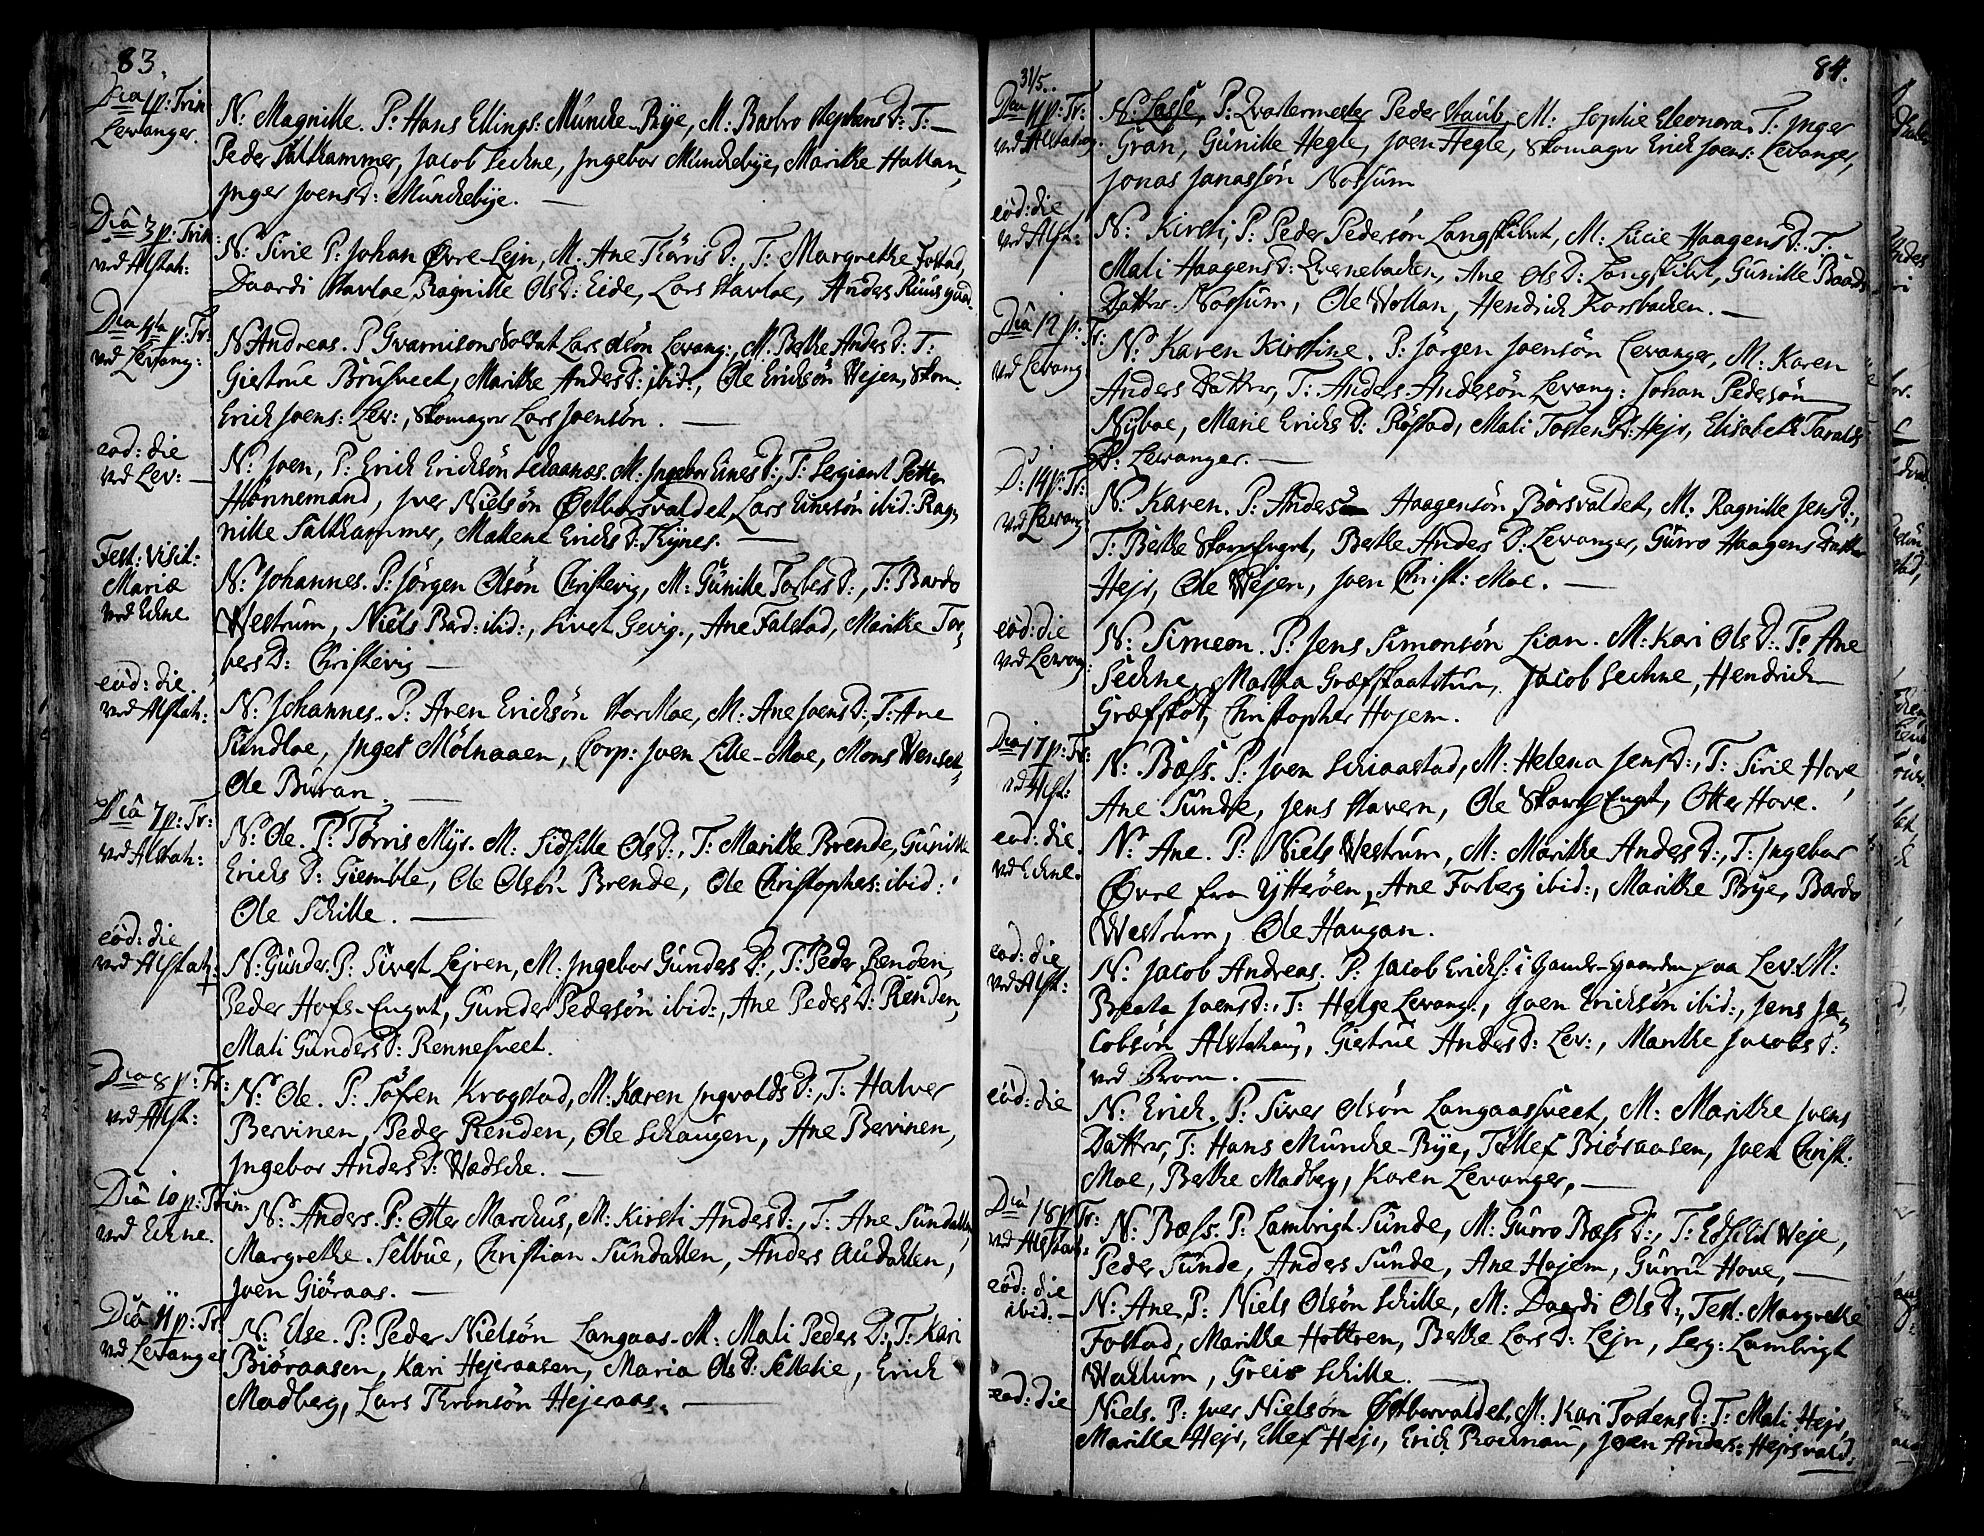 83.
Dca 1 p: Trin
Levanger.
N: Magnille. P: Hans Ellings: Müncke-Bÿe, M: Barbro StephensD: T: —
Peder Salthammer, Jacob Sechne, Jngebor Münckebÿe, Maritke Hallan,
Jnger JoensD: Münckebÿe. —
Dca 3 p: Trin:
ved Alstah:
N: Sirie P: Johan Øvre-Lejn, M. Ane TörisD:, T: Margrethe Fostad,
Daardi Stavloe, Ragnille OlsD: Eide, Lars Stavloe, Anders Rüusgaa
Dca 4ta p: Tr:
ved Levang:
N Andreas. P Gvarnisons Soldat Lars Olsön Levang:, M: Bethe AndersD: T:
Giertrue Brusveet, Maritke AndersD: ibid:, Ole Ericksön Vejen, Skom.
Erick Joens: Lev:, Skomager Lars Joensön. —
eod: die
ved Lev: —
N: Joen, P: Erick Ericksön Schaanes. M: Jngebor EinesD:, T: Sergiant Petter
Hönnemand, Jver Nielsön Østborsvaldet, Lars Einersön ibid: Rag,
nille Salthammer, Mallene EricksD: Rÿnes. —
Fest: Visit:
Mariæ
ved Echne
N: Johannes. P: Jörgen Olsön Christevig, M: Günille TorbersD:, T: Bardo
Westrum, Niels Bard: ibid:, Sivert Gevig., Ane Falstad, Maritke Tor,
bersD: Christevig —
eod: die.
ved Alstah:
N: Johannes. P: Aren Ericksön StorMoe, M: Ane JoensD:, T: Ane
Sundloe, Jnger Mölnaaen, Corp: Joen Lille-Moe, Mons Wenset,
Ole Buran. —
Dca 7 p: Tr:
ved Alstah:
N: Ole. P: Törris Mÿr. M: Sidselle OlsD:, T: Maritke Brende, Günille
Ericks D: Giemble, Ole Olsön Brende, Ole Christophers: ibid:
Ole Schille. —
eod: die
ved Alstah:
N: Gunder. P: Sivert Lejren, M: Jngebor Gunders D:, T: Peder Renden,
Peder Hofs-Enget, Gunder Pedersön ibid:, Ane PedersD: Renden,
Mali GundersD: Rennesveet.
Dca 8 p: Tr:
ved Alst:
N: Ole. P: Töfren Krogstad, M: Karen JngvoldsD:, T: Halver
Bervinen, Peder Renden, Ole Schaugen, Ane Bervinen,
Jngebor AndersD: Wædsche. —
Dca 10 p: Trin:
ved Echne.
N: Anders. P: Otter Marckus, M: Kirsti AndersD:, T: Ane Sündahlen,
Margrethe Selbüe, Christian Sündahlen, Anders Audahlen,
Joen Giöraas. —
Dca 11 p: Tr
ved Levanger
N: Else. P: Peder Nielsön Langaas. M: Mali Peders D: T: Kari
Biöraasen, Kari Hejeraasen, Maria OlsD: Sellelie, Erick
Madberg, Lars Thronsön Hejeraas. —
84.
31/5.
Dca 11 p: Tr:
ved Alstahoug.
N: Lasse, P: Qvartermester Peder Staub, M: Sophie Eleonora. T: Jnger
Gran, Günille Hegle, Joen Hegle, Skomager Erick Joens: Levanger,
Jonas Janassön Nossum
eod: die
ved Alsta:
N: Kirsti, P: Peder Pedersön Langskibet, M: Lucie HaagensD: T:
Mali HaagensD: Qvernebacken, Ane OlsD: Langskibet, Günille Baards
Datter Nossum, Ole Wollan, Hendrich Korsbacken. —
Dca 12 p: Tr:
ved Levang
N: Karen Kirstine. P: Jörgen Joensön Levanger, M: Karen
Anders Datter, T: Anders Andersön Levang: Johan Pedersön
Nÿboe, Marie EricksD: Röstad, Mali TostensD: Hejr, Elisabeth Taralds
D: Levanger. —
D: 14 p: Tr:
ved Levang:
N: Karen. P: Anders Haagensön Börsvaldet, M: Ragnille JensD:,
T: Bethe SkomEnget, Bethe Anders D: Levanger, Gurro Haagens Datter
Hejr, Ole Wejen, Joen Christ: Moe. —
eod: die
ved Levang:
N: Simeon. P: Jens Simonsön Lian. M: Kari OlsD: T: Ane
Sechne, Martha Græfskaatstuen, Jacob Sechne, Hendrich
Græfskot, Christopher Hojem.
Dca 17 p: Tr:
vd Alst:
N: Bæss. P: Joen Schiaastad, M: Helena JensD:, T: Sirie Hove,
Ane Sünde, Jens Staven, Ole SkarpEnget, Otter Hove.
eod: die.
ved Echne.
N: Ane. P: Niels Westrum, M: Maritke AndersD:, T: Jngebor
Øvre fra Ytterøen, Ane Forberg ibid:, Maritke Bÿe, Bardo
Westrum, Ole Haugan.
eod: die
ved Alst:
N: Jacob Andreas. P: Jacob Ericks: i Gamle-Gaarden paa Lev: M:
Beata JoensD:, T: Helge Levang:, Joen Ericksön ibid:, Jens Ja,
cobsön Alstahaug, Giertrue AndersD: Lev:, Marithe JacobsD:
ved Broen. —
eod: die
N: Erick. P: Siver Olsön Langaassveet, M: Maritke Joens
Datter, T: Hans Müncke-Bÿe, Tollef Biöraasen, Joen Christ:
Moe, Bethe Madberg, Karen Levanger, —
Dca 18 p Tr:
ved Alstah:
N: Bæss. P: Lambrigt Sünde, M: Gurro BæssD:, T: Edsild Weje,
Peder Sünde, Anders Sünde, Ane Hojem, Gurru Hove, —
eod: die
ibid. —
N: Ane P: Niels Olsön Schille, M: Daardi OlsD:, Test: Margrethe
Fostad, Maritke Holtven, Bethe LarsD: Lejn, Serg: Lambrigt
Wallum, Greis Schille. —
eod: die
Niels. P: Jver Nielsön Østborvaldet, M: Kari TostensD: T: Mali Hejr,
Maritke Hejr, Ellef Hejr, Erick Rochnau, Joen Anders: Hejrsvald: